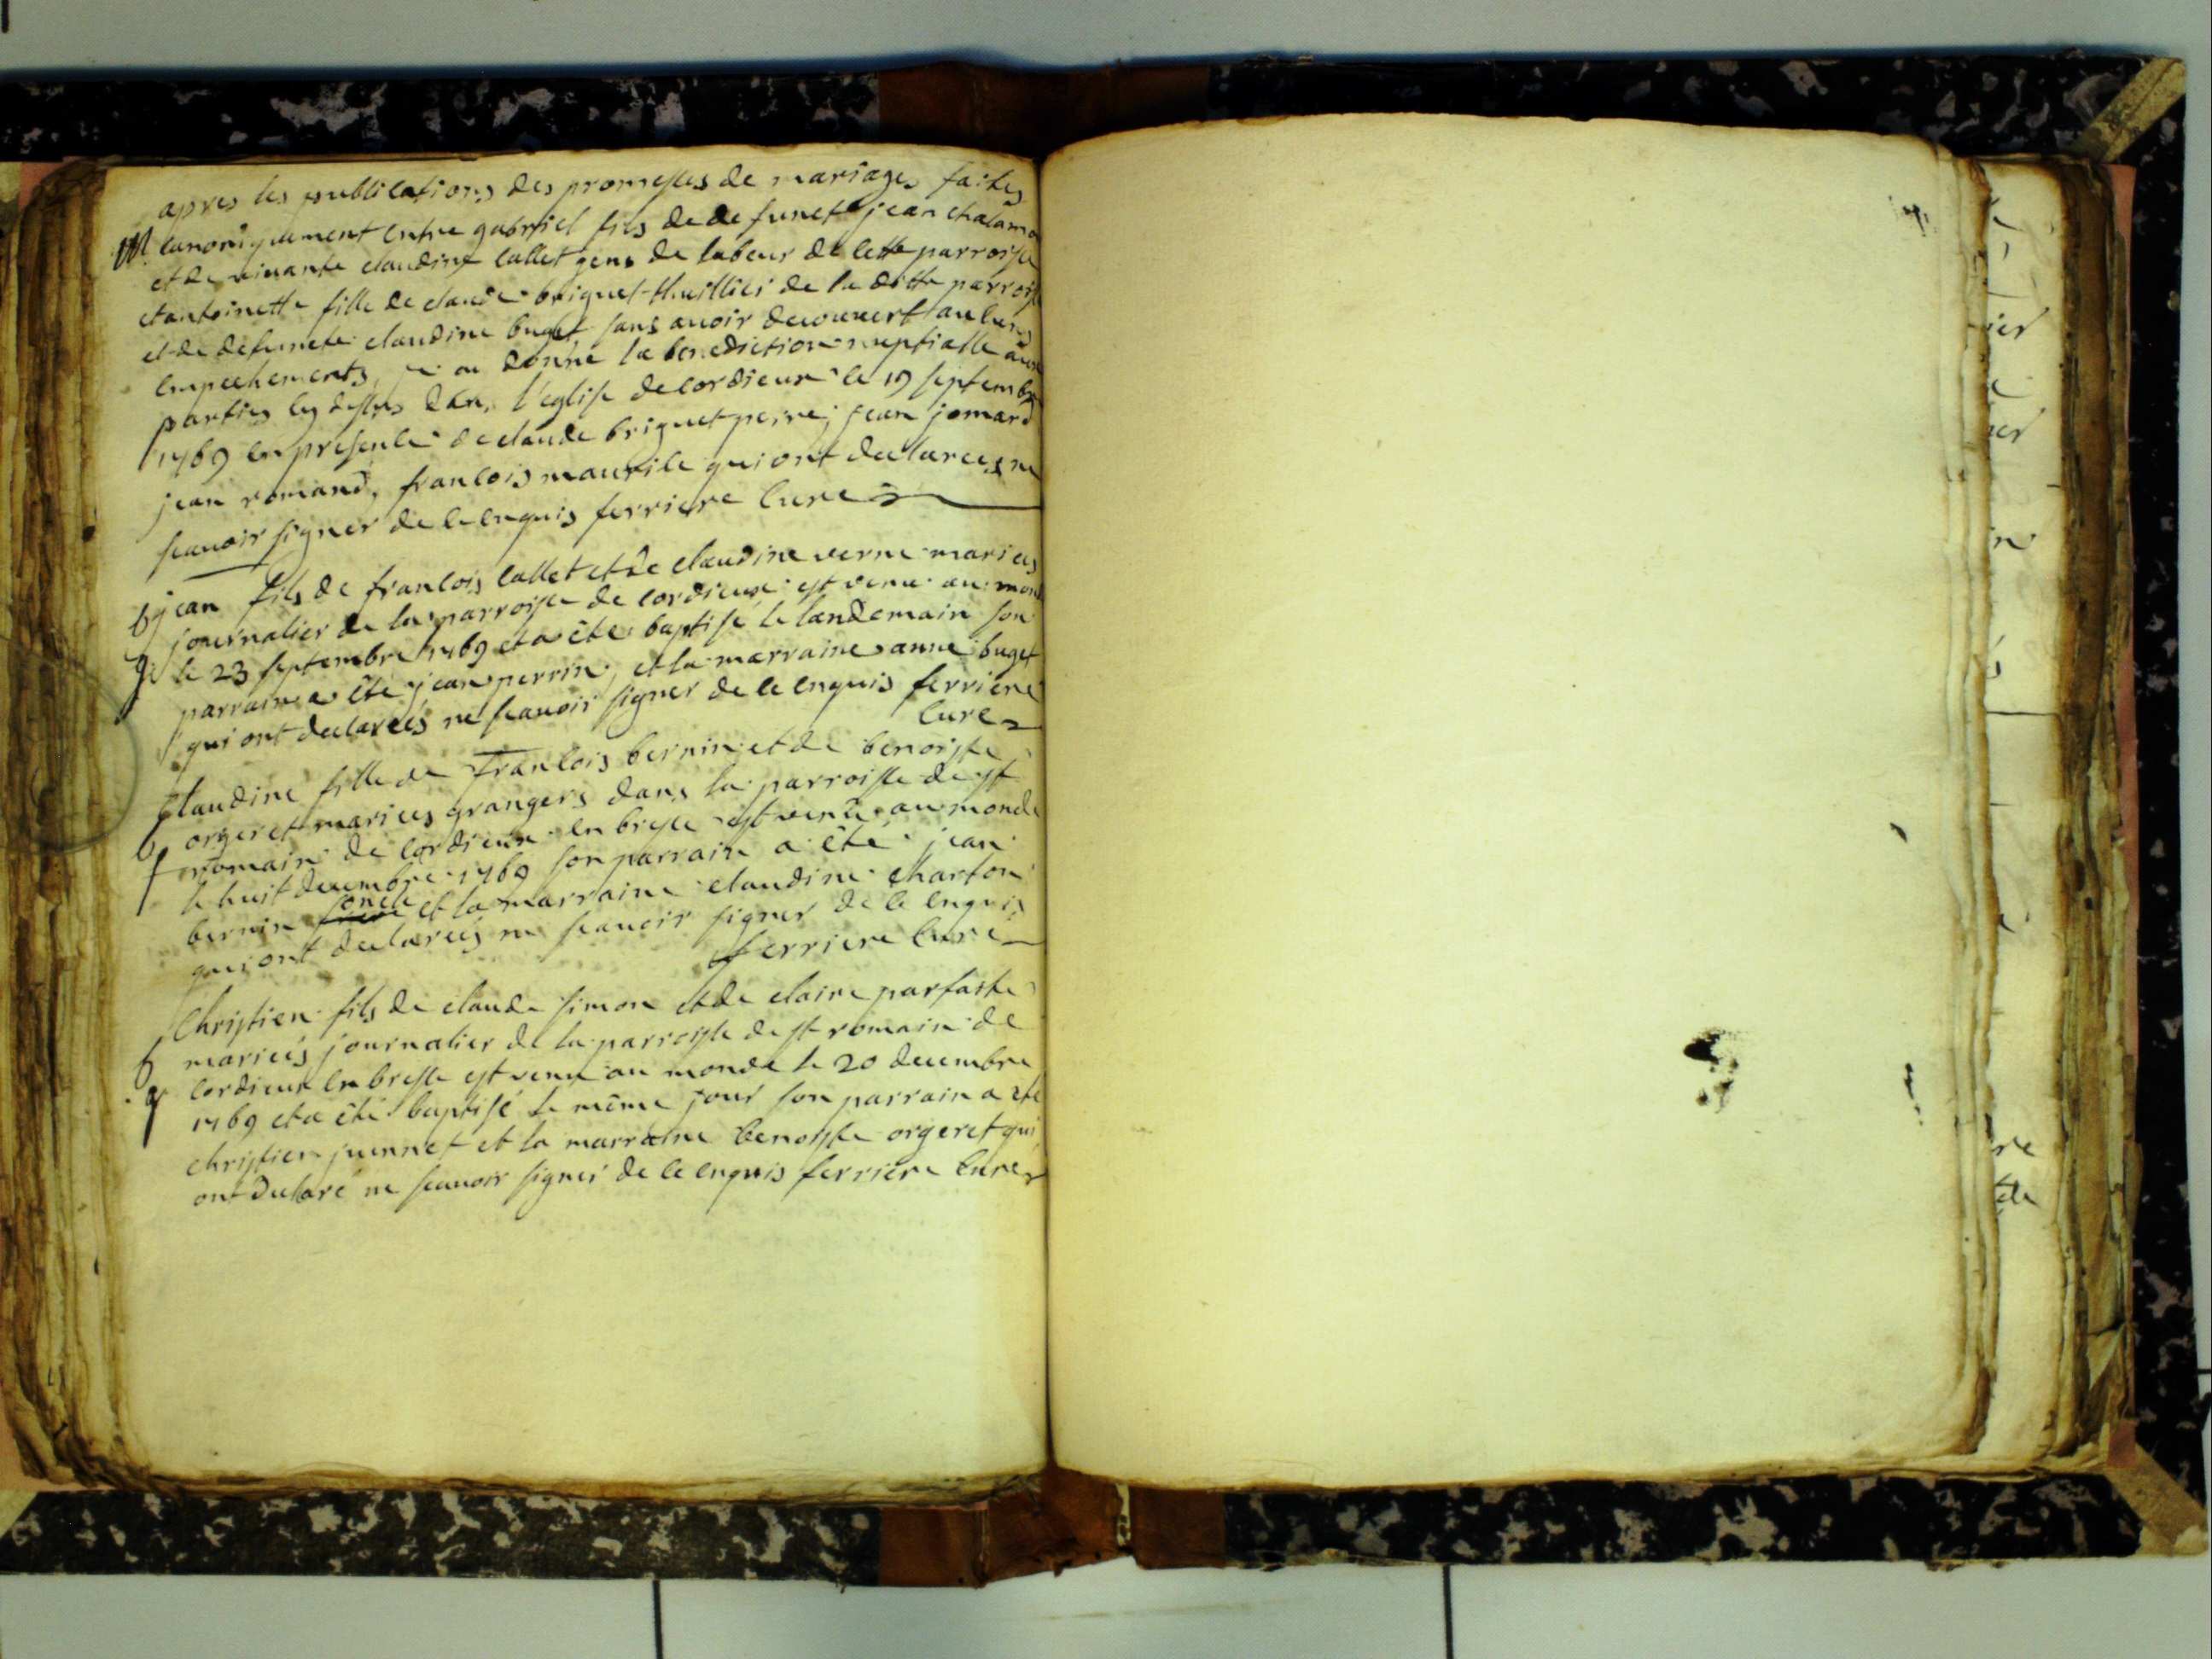 apres les publications des promesses de mariages faites
M canoniquement entre gabriel fils de defunct jean chalamo
et de vivante claudine callet gens de labeur de cette parroisse
et antoinette fille de claude briguet thuillier de la ditte parrois
et de defuncte claudine buget sans avoir decouvert aucuns
empechements, je ai donné la benediction nuptialle aux
parties cy dessus dans l'eglise de cordieux le 19 septembre
1769 en presence de claude briguet perre, jean jomard
jean romand, francois maurile qui ont declarees ne
scavoir signer de ce enquis ferriere cure
b jean fils de francois callet et de claudine verne mariees
journalier de la parroisse de cordieux est venu au mond
g le 23 septembre 1769 et a été baptisé le landemain son
parrain a été jean perrin, et la marraine anne buget
qui ont declarees ne scavoir signer de ce enquis ferriere
cure
Claudine fille de francois bernin et de benoiste
b orgeret mariees grangers dans la parroisse de st
f romain de cordieux en bresse est venue au monde
le huit decembre 1769 son parrain a été jean
bernin oncle et la marraine claudine charton
qui ont declarees ne scavoir signer de ce enquis
ferriere cure
Christien fils de claude simon et de claire parfaite
b mariees journalier de la parroisse de st romain de
g cordieux en bresse est venu au monde le 20 decembre
1769 et a été baptisé le même jour son parrain a été
christien juennet et la marraine benoiste orgeret qui
ont declaré ne scavoir signer de ce enquis ferriere cure